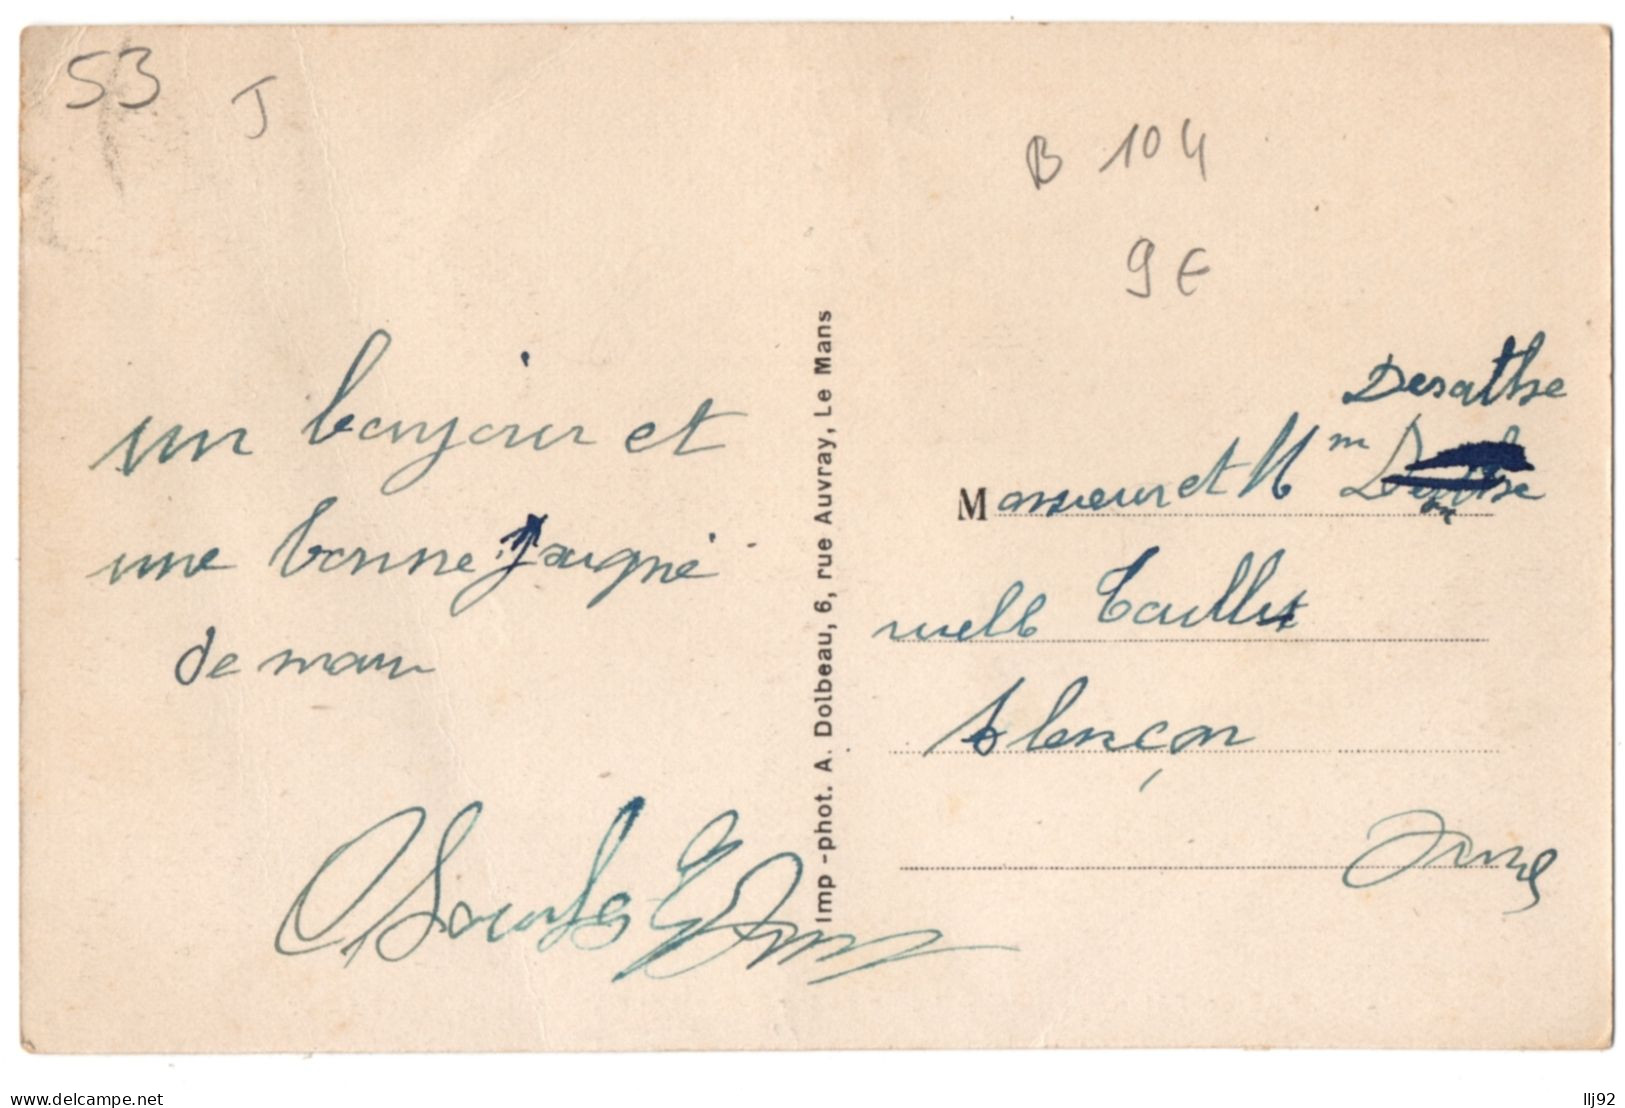 53
J
B 104
9 €
un bonjour et
une bonne Jaugné
de
Imp -phot. A. Dolbeau, 6, rue Auvray, Le Mans
Desathse
Monsieur et Mm
ruelle Taillis
Alençon
Orne
www.delcampe.net
llj92